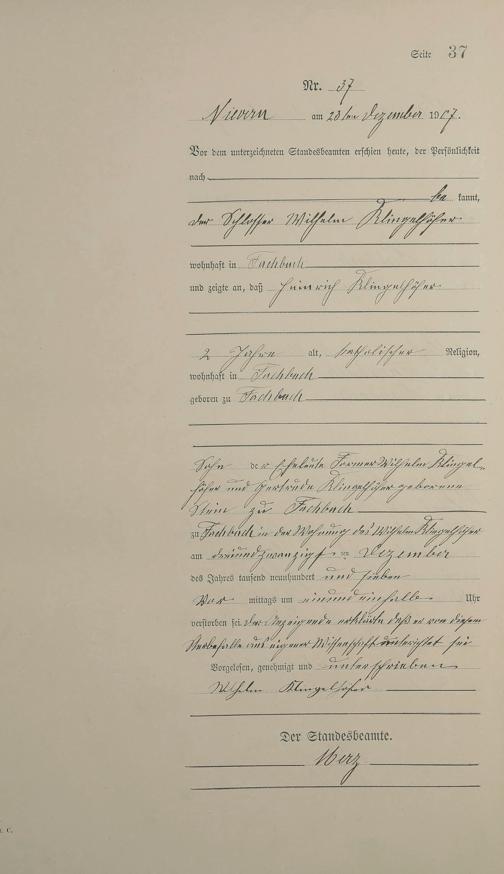 Seite 37
Nr. 37
Nievern am 23ten Dezember 1907.
Vor dem unterzeichneten Standesbeamten erschien heute, der Persönlichkeit
nach
be kannt,
der Schlosser Wilhelm Klingelhöfer
wohnhaft in Fachbach
und zeigte an, daß Heinrich Klingelhöfer
2 Jahre alt, katholischer Religion,
wohnhaft in Fachbach
geboren zu Fachbach
Sohn der Eheleute Former Wilhelm Klingel-
höfer und Gertrude Klingelhöfer geborene
Stein zu Fachbach
zu Fachbach in der Wohnung des Wilhelm Klingelhöfer
am dreiundzwanzigsten Dezember
des Jahres tausend neunhundert und sieben
Vor mittags um ein Uhr
verstorben sei. Der Anzeigende erklärte daß er von diesem
Sterbefalle aus eigener Wissenschaft unterrichtet sei
Vorgelesen, genehmigt und unterschrieben
Wilhelm Klingelhöfer
Der Standesbeamte.
Merz
. C.